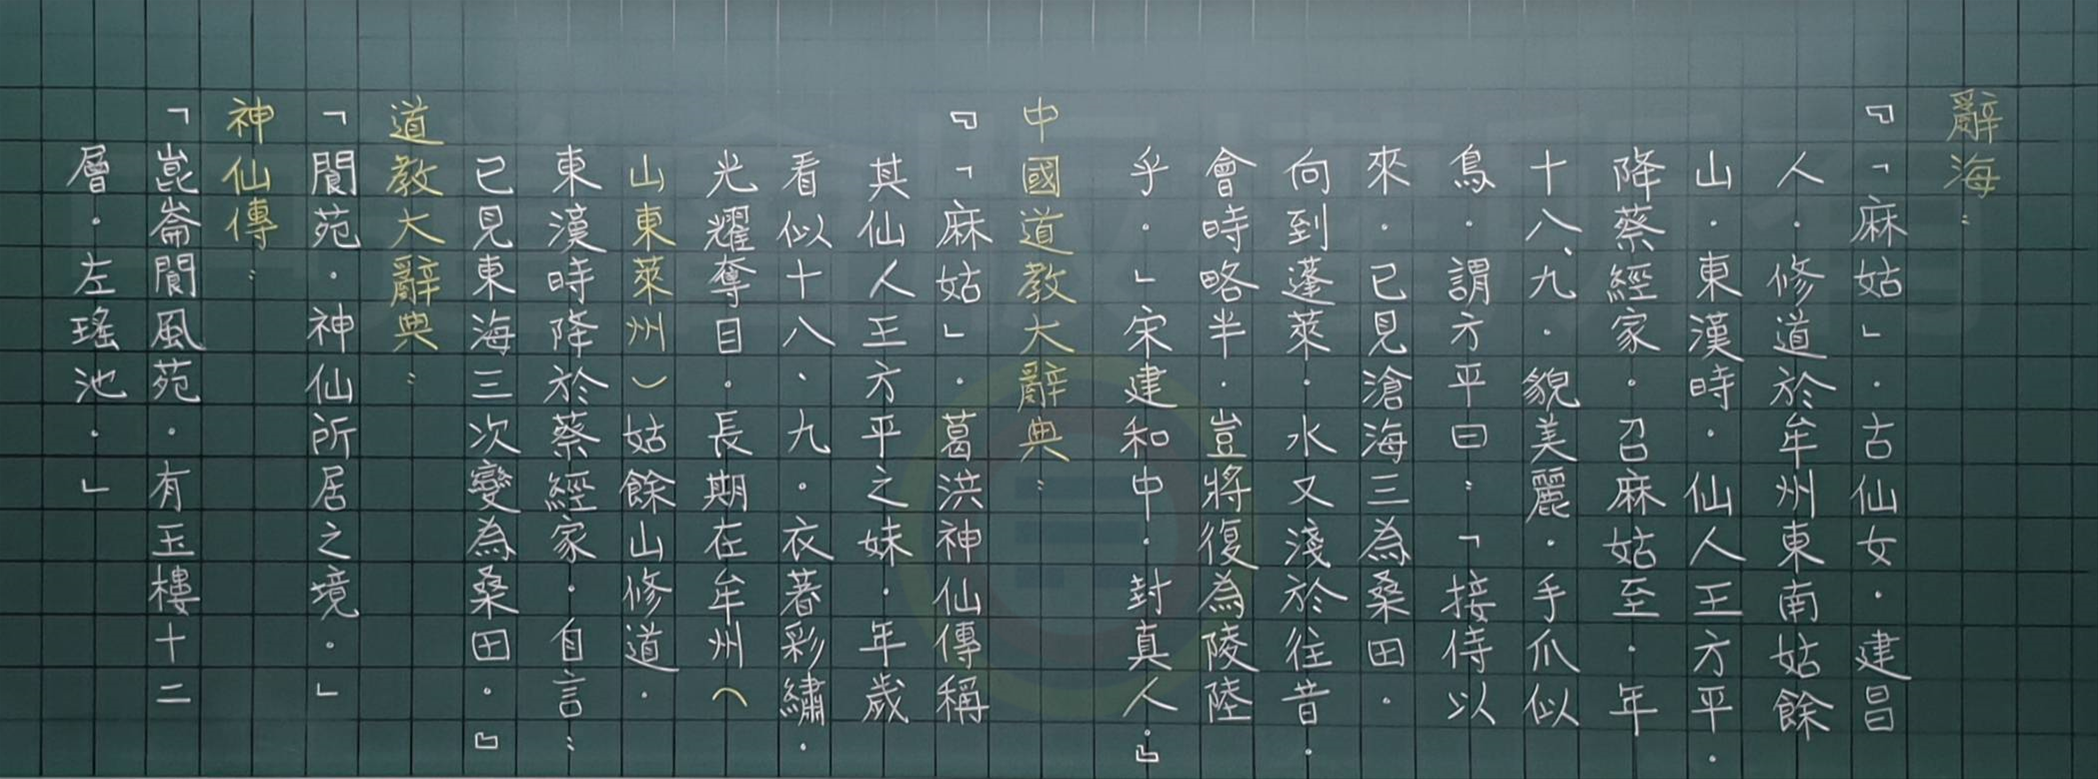 辭海：
『「麻姑」．古仙女．建昌
人．修道於牟州東南姑餘
山．東漢時．仙人王方平．
降蔡經家．召麻姑至．年
十八、九．貌美麗．手爪似
鳥．謂方平曰：「接侍以
來．已見滄海三為桑田．
向到蓬萊．水又淺於往昔．
會時略半．豈將復為陵陸
乎．」宋建和中．封真人．』
中國道教大辭典：
『「麻姑」．葛洪神仙傳稱
其仙人王方平之妹．年歲
看似十八、九．衣著彩繡．
光耀奪目．長期在牟州（
山東萊州）姑餘山修道．
東漢時降於蔡經家．自言：
已見東海三次變為桑田．』
道教大辭典：
「閬苑．神仙所居之境．」
神仙傳：
「崑崙閬風苑．有玉樓十二
層．左瑤池．」